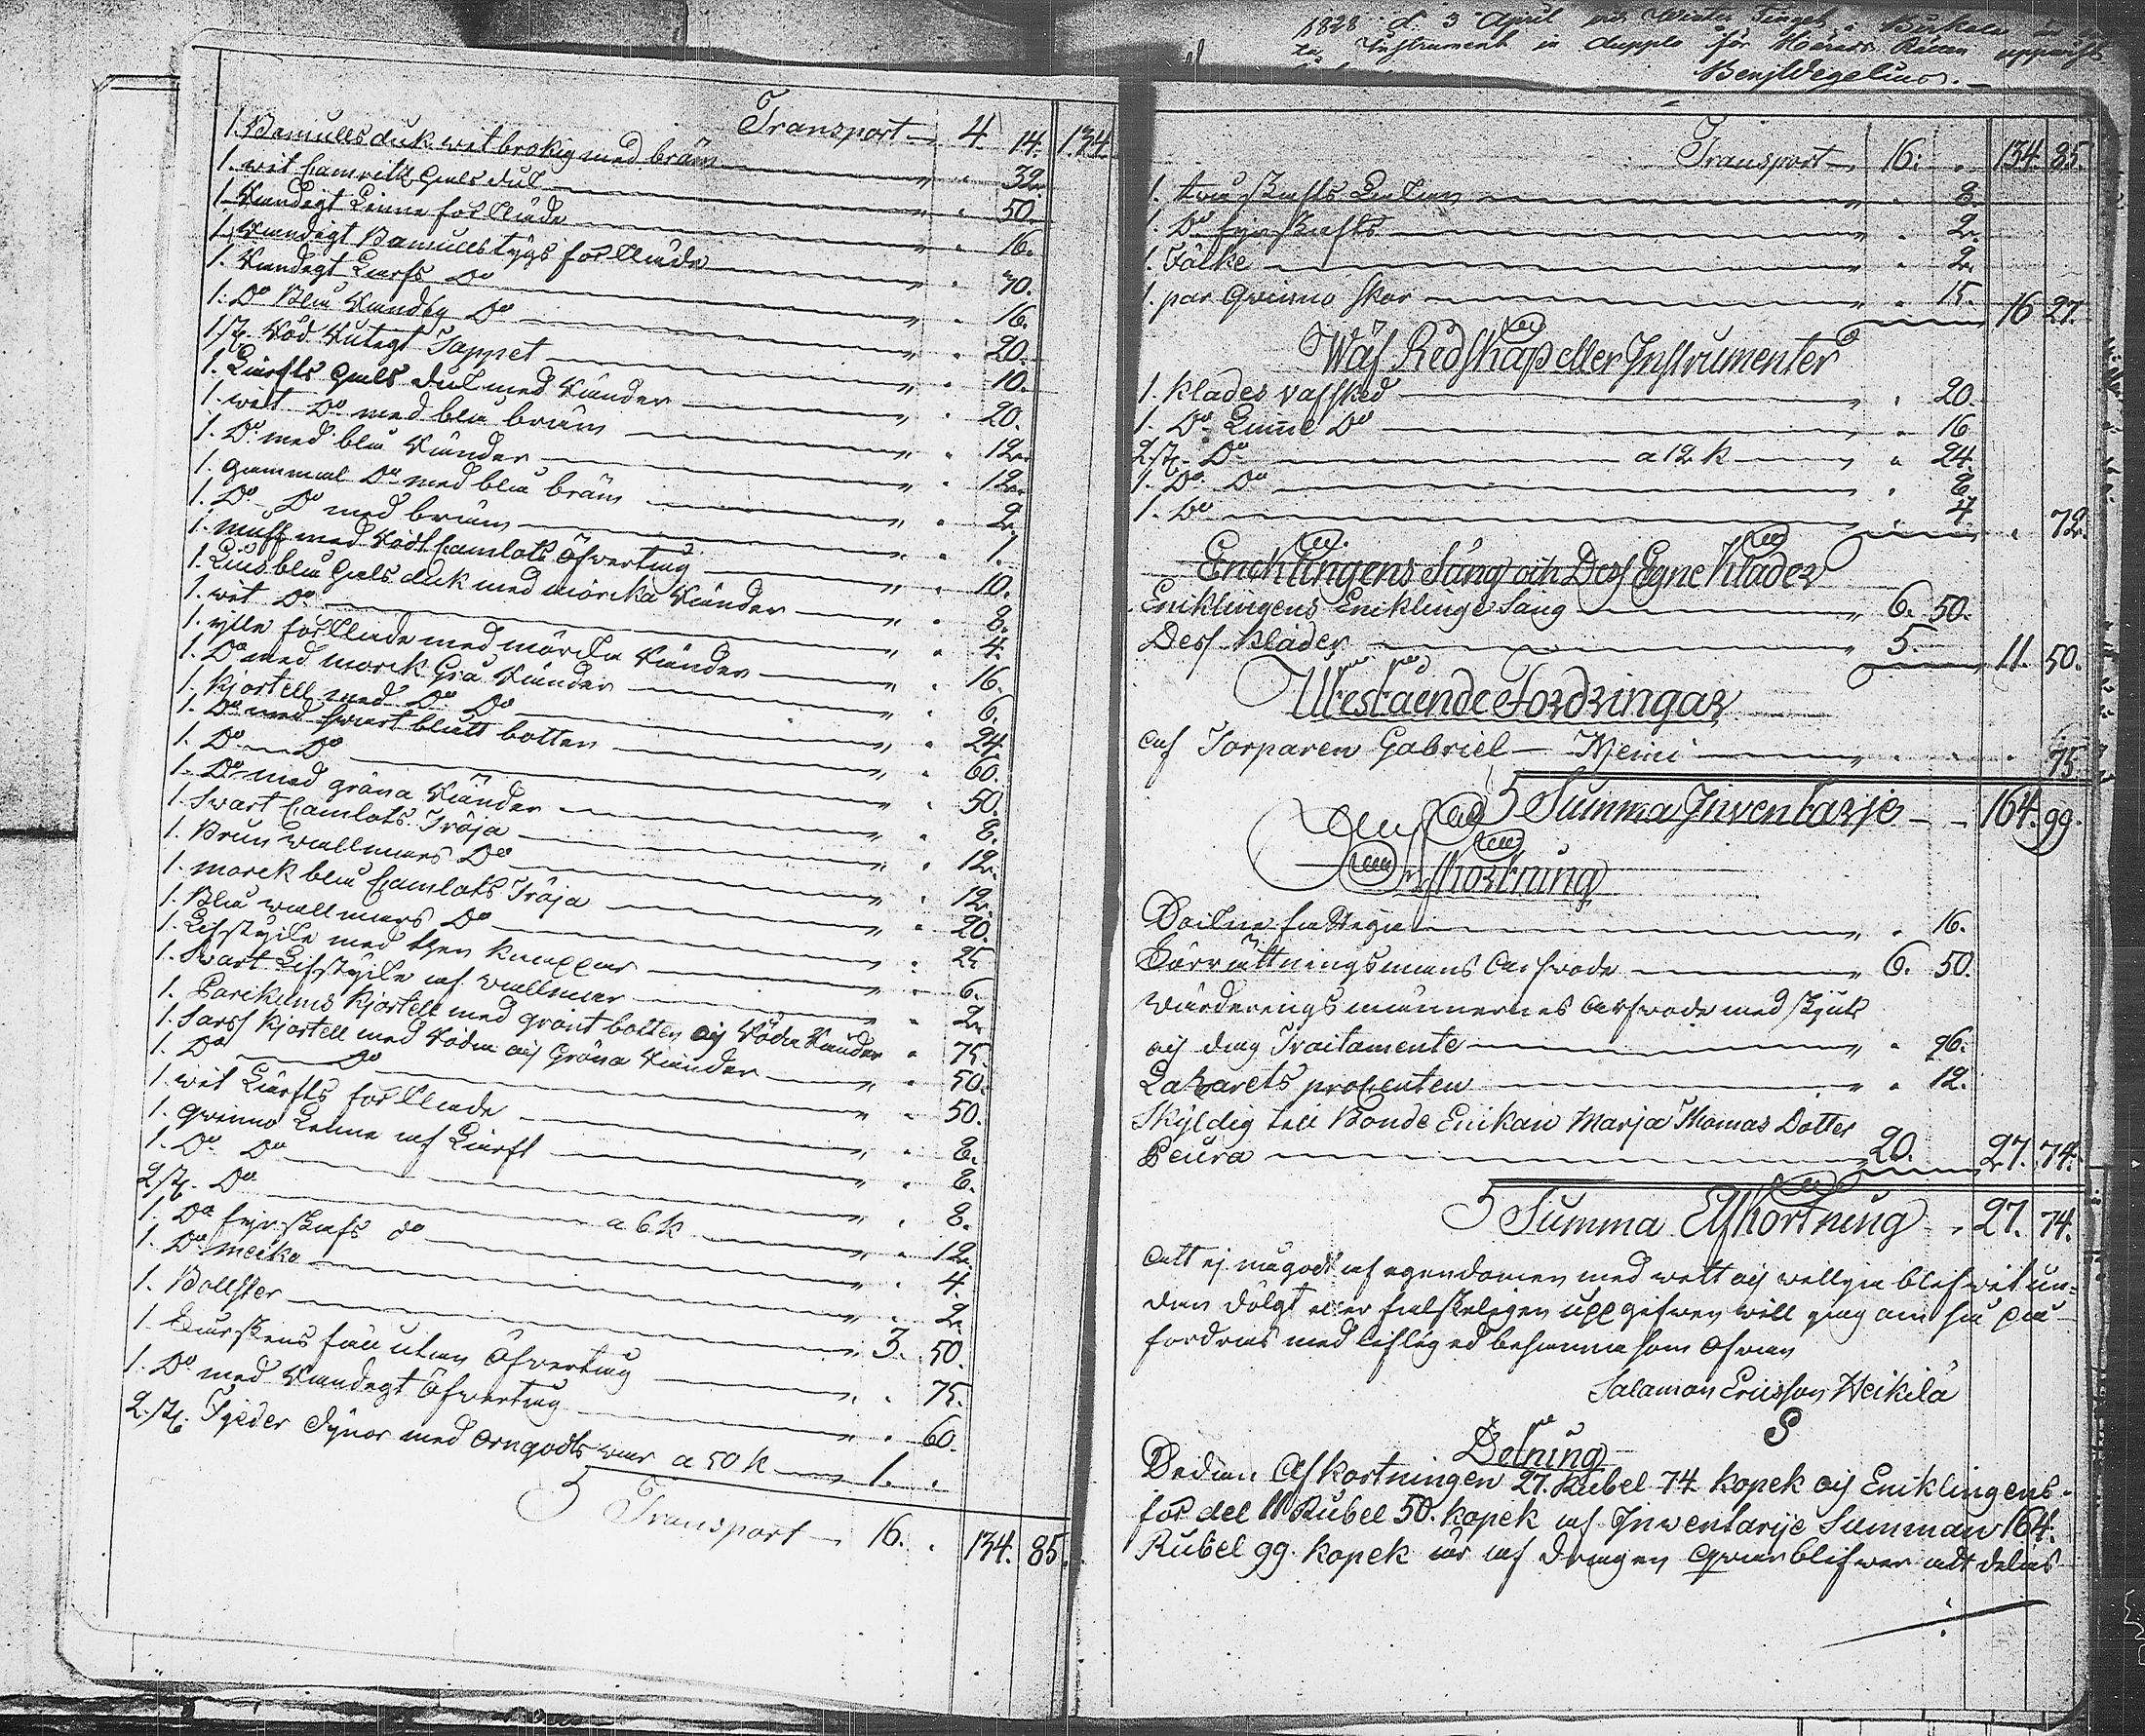 1828 d. 3 April vid Winter Tinget i
Instrument in duplo för Härads Rätten uppvist
BenjWegelius.
Transport 4. 14. 134.
1. Bamulls duk wet brokig med bräm 32.
1. wit Camritz Hals duk 50.
1. Randigt Linne förkläde 16.
1. Randigt Bamullstygs förkläde 70.
1. Randigt Lärfs Do 16.
1. Do Blå Randig Do 20.
1 st. Röd Rutigt Tappet 10.
1. Lärfts Hals duk med Ränder 20.
1. wit Do med blå bräm 12.
1. Do med blå Ränder 12.
1. gammal Do med blå bräm 2.
1. Do Do med bräm 1.
1. muff med Rödt Camlots Öfvertug 10.
1. Lius blå Hals duk med mörcka Ränder 8.
1. wit Do 4.
1. ylle förkläde med mörcka Ränder 16.
1. Do med morck Grå Ränder 6.
1. Kjortell med Do Do 24.
1. Do med swart blått botten 60.
1. Do Do 50.
1. Do med gröna Ränder 8.
1. Svart Camlots Tröja 12.
1. Brun wallmars Do 12.
1. morck blå Camlots Tröja 20.
1. Blå wallmars Do 25.
1. Lifstycke med tten knappar 6.
1. Svart Lifstycke af wallmar 2.
1. Parckums Kjortell med grönt botten och Röda Ränder 75.
1. Sarss Kjortell med Röda och Gröna Ränder 50.
1. Do Do 50.
1. wit Lärfts förkläde 8.
1. Qvinno Linne af Lärft 8.
1. Do Do 8.
2 st. Do a 6 k 12.
1. Do fyrskafs do 4.
1. Do meiko 2.
1. Bollster 3. 50.
1. Fårskens fäll utan Öfvertug 75.
1. Do med Randigt Öfvertug 60.
2 st. Fjeder Dynor med Örngodts war a 50 k 1. .
Transport 16. . 134. 85.
Transport 16. . 134. 85.
1. twå skafts Lakan 8.
1. Do fyrskafts 2.
1. Täcke 2.
1. par Qvinno skor 15. 16 27.
Wäf Redskap eller Instrumenter
1. Klädes vafsked 20.
1. Do Linne Do 16
2 st. Do a 12 k 24.
1. Do Do 8.
1. Do 4. . 72.
Encklingens Säng och Dess Egne Kläder
Enklingens Encklinge Säng 6. 50.
Dess Kläder 5. 11. 50.
Utestående Fordringar
af Torparen Gabriel Niemi 75
Summa Inventarje 164. 99.
Afkortning
16.
Förrättningsmans Arfvode 6. 50.
Värderingsmännernes Arfvode med skjuts
och dag Traitamente 96.
Lazarets procenten 12.
Skyldig till Bonde Enkan Marja Thomas Dotter
Peura 20. 27. 74.
Summa Afkortning 27. 74.
Att ej något af egendomen med wett och wellja blefvit un-
dan dölgt eller falskeligen uppgifven will jag om så på
fordras med liflig ed besanna som Ofvan
Salamon Ericsson Heikilä
Delning
Sedan Afkortningen 27. Rubel 74 kopek och Enklingens
fördel 11 Rubel 50. kopek af Inventarije Summan 164.
Rubel 99. kopek är af dragen qwarblifver att delas